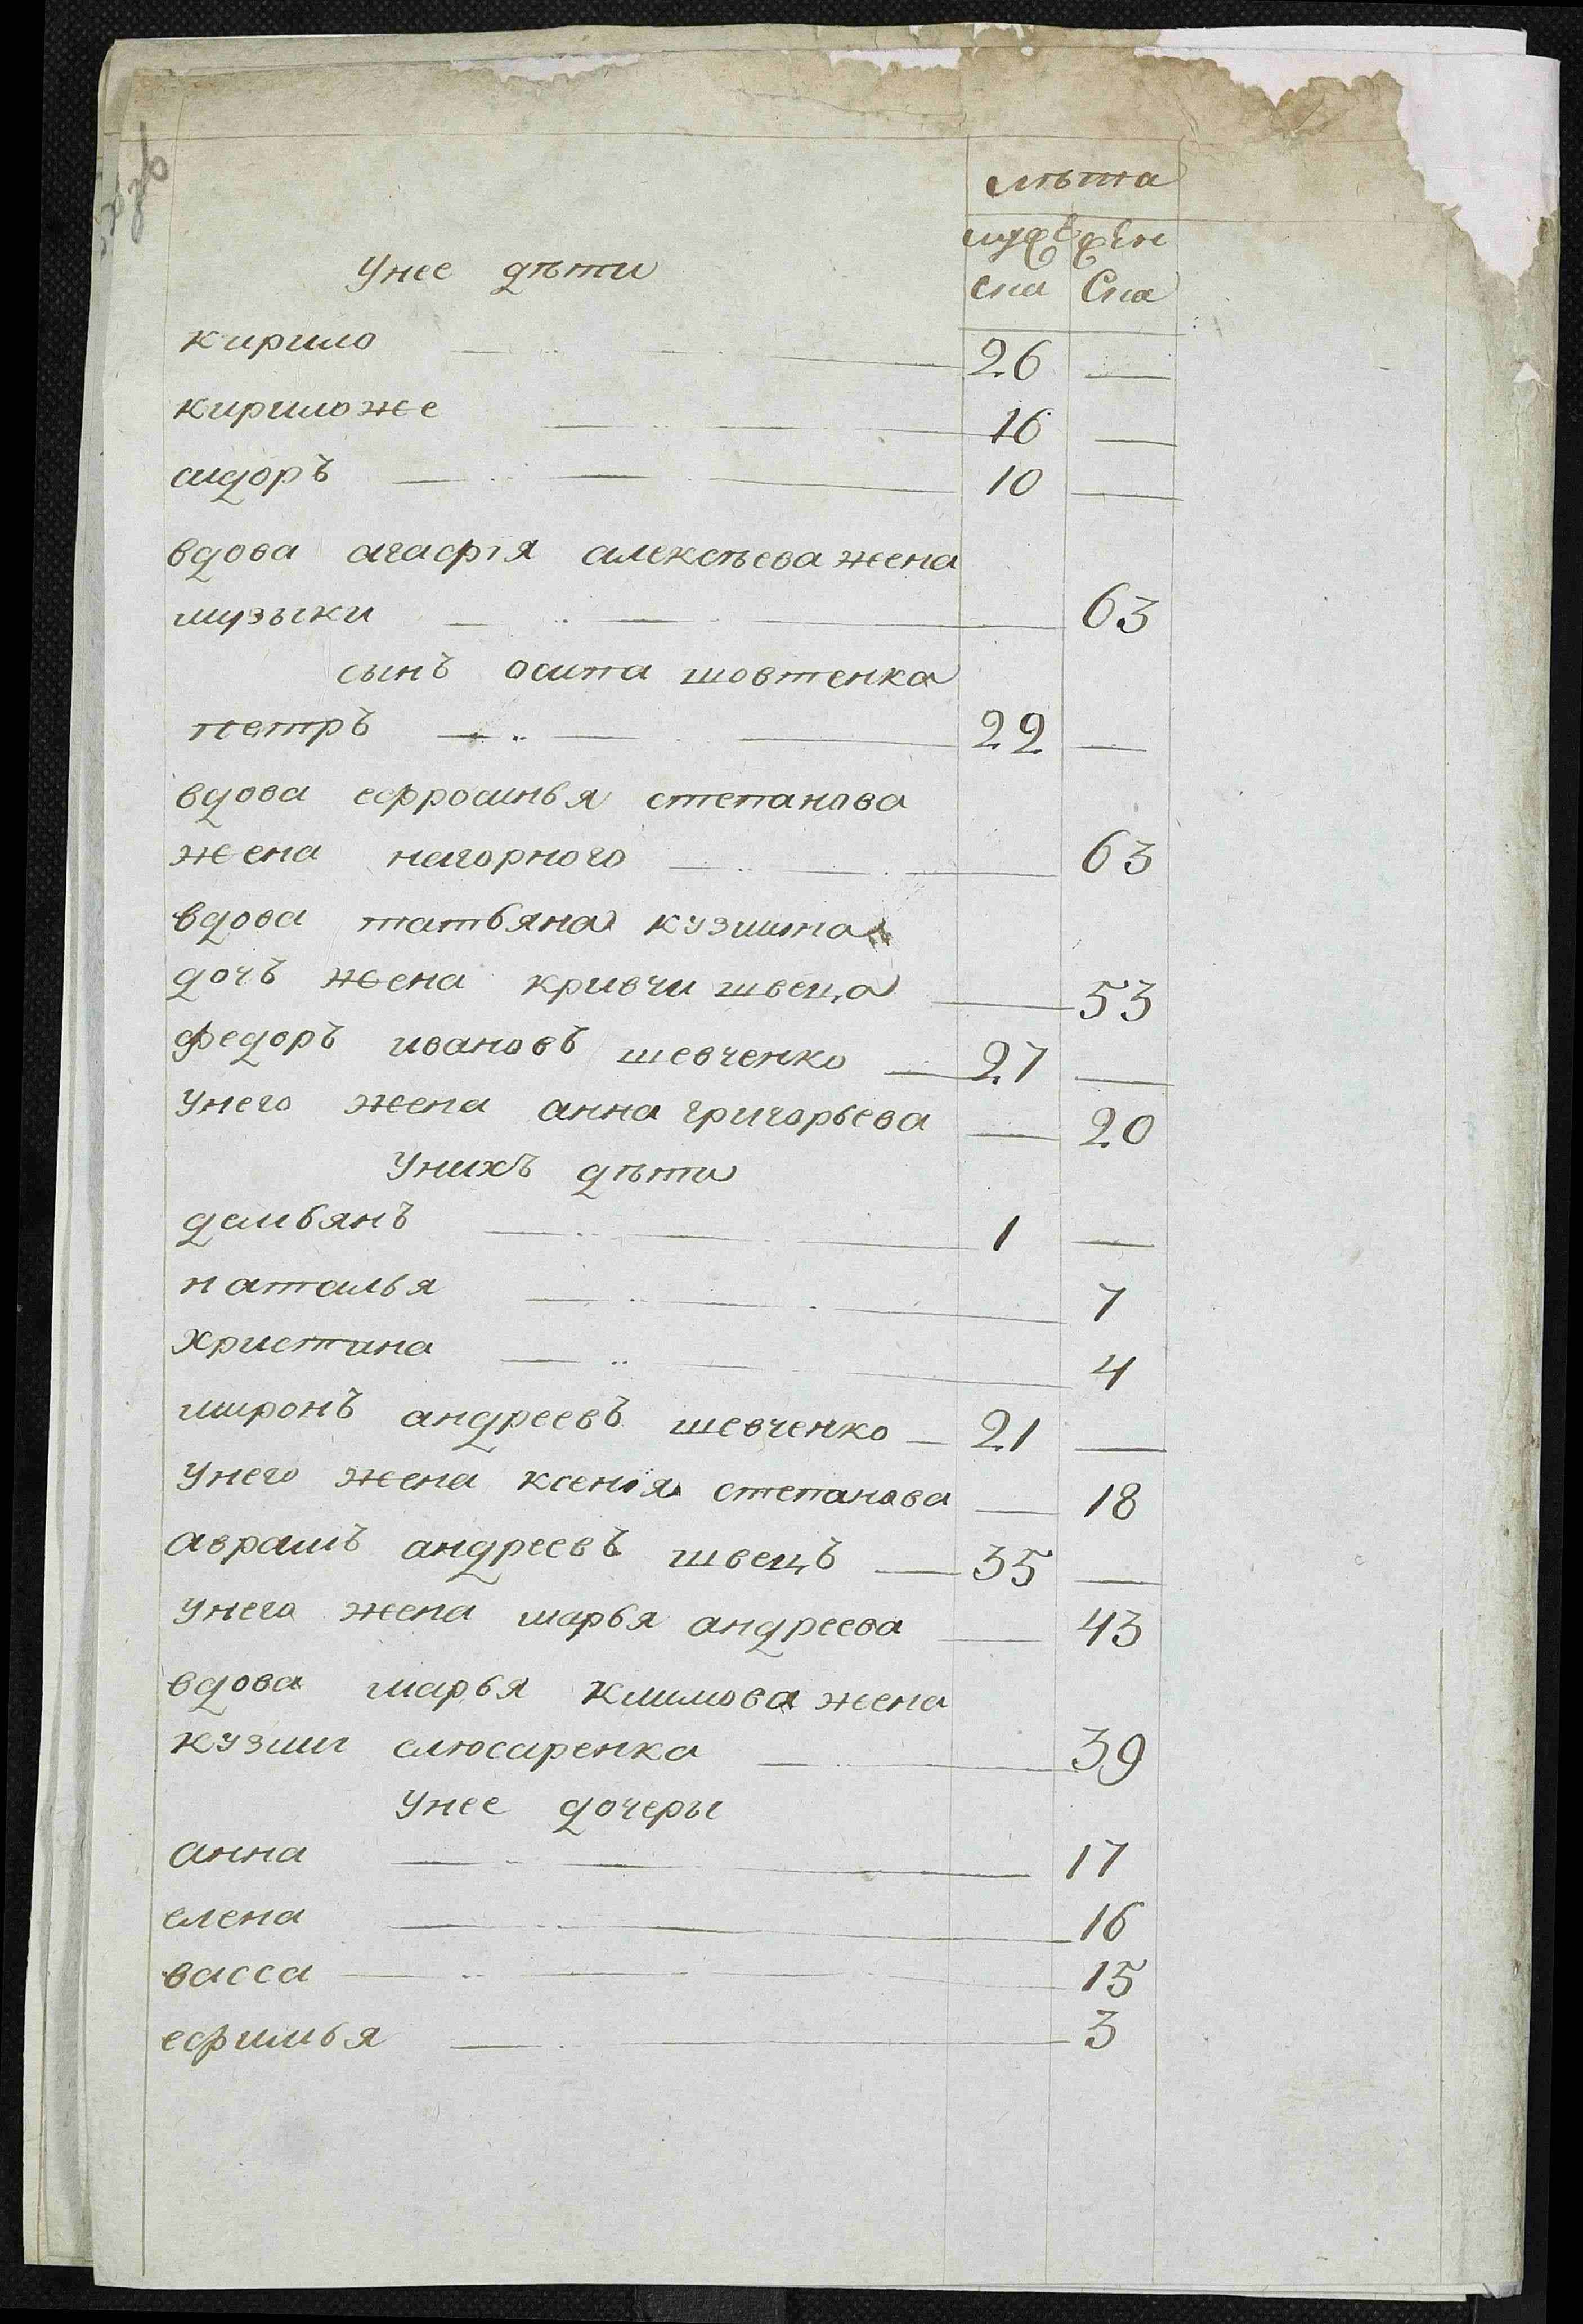 лѣта
муже жен
ска Ска
Унее дѣти
кирило 26 —
кириложе 16 —
сидоръ 10 —
вдова агафія алексѣева жена
музыки 63
сынъ осипа шовтенка
петръ 22 —
вдова ефросинья степанова
жена нагорного 63
вдова татьяна кузмина
дочъ жена кривчи швеца 53
федоръ ивановъ шевченко 27 —
унего жена анна григорьева 20
Унихъ дѣти
демьянъ 1 —
наталья 7
христина 4
миронъ андреевъ шевченко 21 —
Унего жена ксенія степанова 18
аврамъ андреевъ швецъ 35 —
унего жена марья андреева 43
вдова марья климова жена
кузми слюсаренка 39
Унее дочеры
анна 17
елена 16
васса 15
ефимья 3